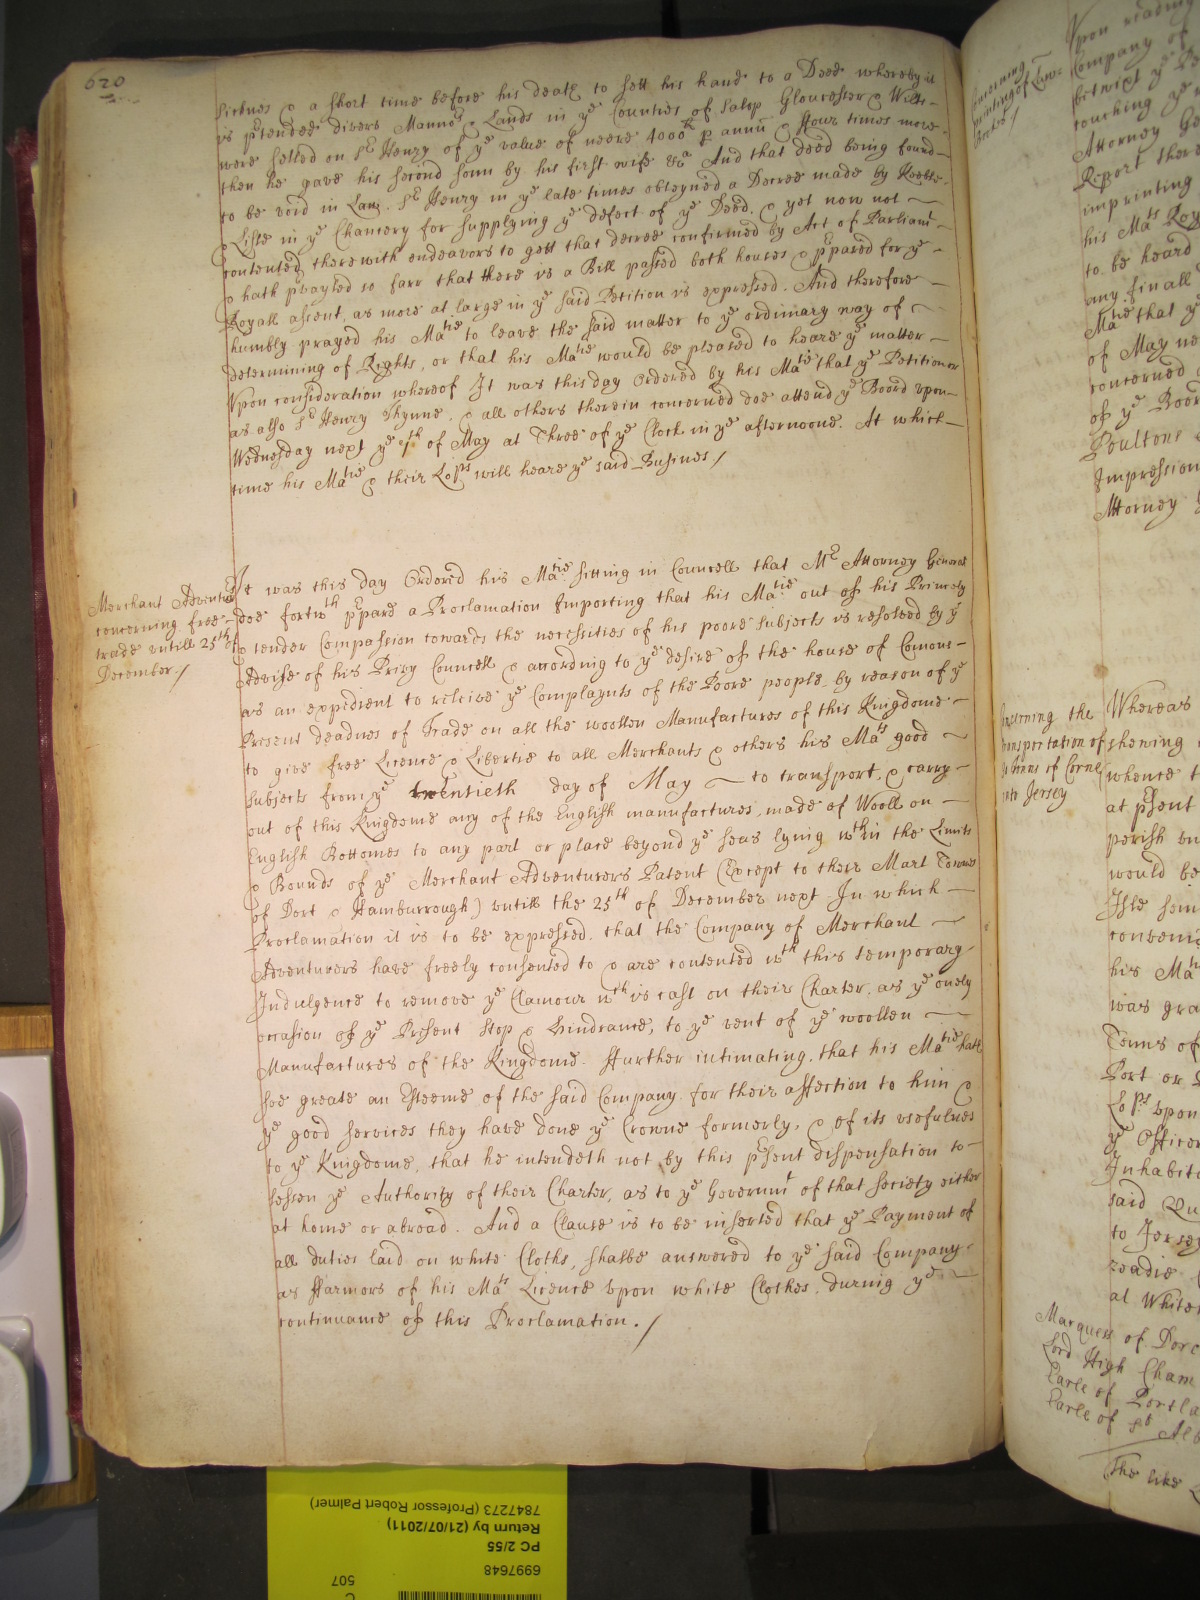 620
Sicknes & a short time before his death to sett his hand to a Deed whereby it
is ptended divers Mannors & Lands in ye Counties of Salop Gloucester & Wilts
were setled on Sr Henry of ye value of neere 4000li p annu & ffour times more
then he gave his second sonn by his first wife &ca And that deed being found
to be void in Law. Sr Henry in ye late times obteyned a Decree made by Keeble
& Lisle in ye Chancery for supplying ye defect of ye Deed, & yet now not
contented therewith endeavors to gett that decree confirmed by Act of Parliamt
& hath pvayled so farr that there is a Bill passed both houses & ppared for ye
Royall assent, as more at large in ye said Petition is expressed. And therefore
humbly prayed his Matie to leave the said matter to ye ordinary way of
determining of Rights, or that his Matie would be pleased to heare ye matter
Upon consideration whereof It was this day Ordered by his Matie that ye Petitioner
as also Sr Henry Thynne, & all others therein concerned doe attend ye Board upon
Wednesday next ye 7th of May at Three of ye Clock in ye afternoone. At which
time his Matie & their Lopps will heare ye said Busines /
Merchant Adventurs
concerning free
trade untill 25th of
December /
It was this day Ordered his Matie sitting in Councell that Mr Attorney Generall
doe forthwth ppare a Proclamation Importing that his Matie out of his Princely
& tender Compassion towards the necessities of his poore subjects is resolved by ye
Advise of his Privy Councell & according to ye desire of the house of Comons
as an expedient to releive ye Complaynts of the Poore people by reason of ye
Present deadnes of Trade on all the woollen Manufactures of this Kingdome
to give free Licence & Libertie to all Merchants & others his Mats good
subjects from ye twentieth day of May to transport, & carry
out of this Kingdome any of the English manufactures made of Wooll on
English Bottomes to any part or place beyond ye seas lying wthin the Limits
& Bounds of ye Merchant Adventurers Patent (Except to their Mart Townes
of Dort & Hamburrough) untill the 25th of December next In which
Proclamation it is to be expressed, that the Company of Merchant
Adventurers have freely consented to & are contented wth this temporary
Indulgence to remove ye Clamour wch is cast on their Charter, as ye onely
occasion of ye Present stop & hindrance, to ye vent of ye woollen
Manufactures of the Kingdome. ffurther intimating, that his Matie hath
soe greate an Esteeme of the said Company for their affection to him &
ye good services they have done ye Crowne formerly, & of its usefulnes
to ye Kingdome, that he intendeth not by this psent dispensation to
lessen ye Authority of their Charter, as to ye Governmt of that Society either
at home or abroad. And a Clause is to be inserted that ye Payment of
all duties laid on white Cloths, shalbe answered to ye said Company
as ffarmors of his Mats Licence upon white Clothes, during ye
continuance of this Proclamation. /
Concerning
printing of Law
Bookes /
Upon reading
Company of
betwixt ye
touching ye
Attorney Ge
Report there
imprinting
his Mats Roy
to be heard
any finall
Matie that ye
of May ne
concerned
of ye Boar
Poultons
Impression
Attorney
concerning the
transportation of
Corne
into Jersey
Whereas
shewing
whence
at psent
perish
would be
Isle
conveni
his Mats
was gra
Tonns of
Port or
Lopps upon
ye Officer
Inhabita
said Qu
to Jersey
readie
at White
Marquess of Dorc
Lord High Cham
Earle of Portla
Earle of St Alb
The like
507
6997648
PC 2/55
Return by (21/07/2011)
7847273 (Professor Robert Palmer)